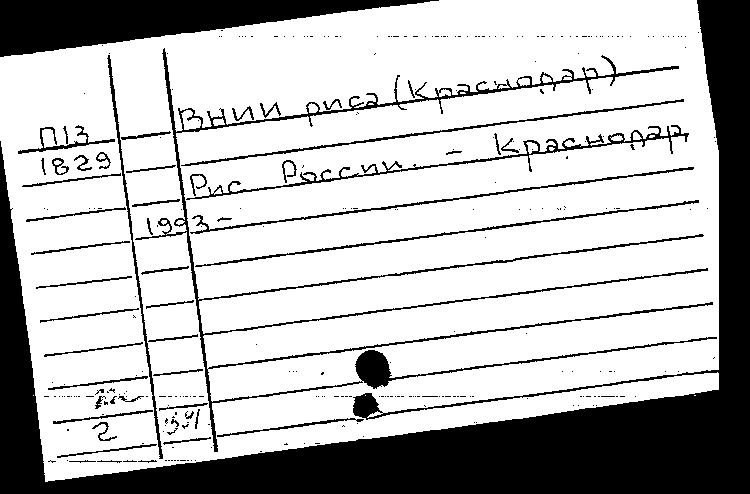 П13
1829
ВНИИ риса (Краснодар)
Рис России. - Краснодар,
1993-
2